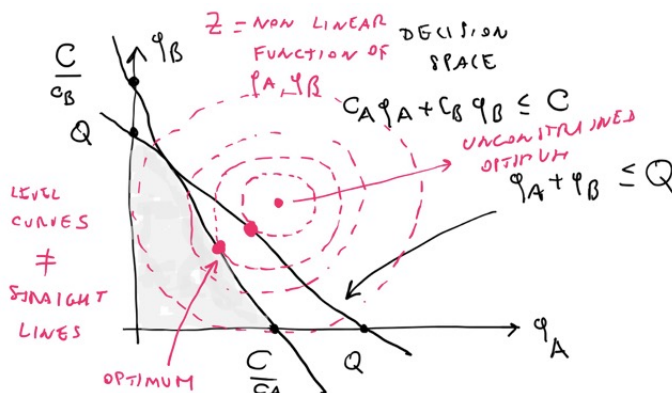 Z = NON LINEAR
FUNCTION OF
φA, φB
DECISION
SPACE
C
cB
φB
Q
cA φA + cB φB ≤ C
UNCONSTRAINED
OPTIMUM
φA + φB ≤ Q
LEVEL
CURVES
≠
STRAIGHT
LINES
OPTIMUM
C
cA
Q
φA